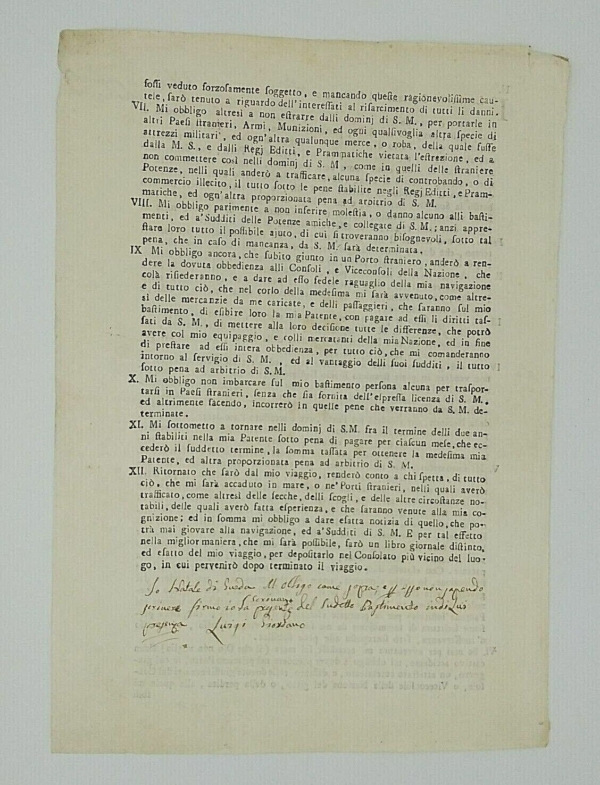 fossi veduto forzosamente soggetto, e mancando queste ragionevolissime cau-
tele, sarò tenuto a riguardo dell'interessati al risarcimento di tutti li danni.
VII. Mi obbligo altresì a non estrarre dalli dominj di S. M., per portarle in
altri Paesi stranieri, Armi, Munizioni, ed ogni qualsivoglia altra specie di
attrezzi militari, ed ogn'altra qualunque merce, o roba, della quale fusse
dalla M. S., e dalli Regj Editti, e Prammatiche vietata l'estrezione, ed a
non commettere così nelli dominj di S. M., come in quelli delle straniere
Potenze, nelli quali anderò a trafficare, alcuna specie di controbando, o di
commercio illecito, il tutto sotto le pene stabilite negli Regj Editti, e Pram-
matiche, ed ogn'altra proporzionata pena ad arbitrio di S. M.
VIII. Mi obbligo parimente a non inferire molestia, o danno alcuno alli basti-
menti, ed a'Sudditi delle Potenze amiche, e collegate di S. M.; anzi appre-
stare loro tutto il possibile ajuto, di cui si troveranno bisognevoli, sotto tal
pena, che in caso di mancanza, da S. M. sarà determinata.
IX Mi obbligo ancora, che subito giunto in un Porto straniero, anderò a ren-
dere la dovuta obbedienza alli Consoli, e Viceconsoli della Nazione, che
colà risiederanno, e a dare ad esso fedele raguaglio della mia navigazione
e di tutto ciò, che nel corso della medesima mi sarà avvenuto, come altre-
sì delle mercanzie da me caricate, e delli passaggieri, che saranno sul mio
bastimento, di esibire loro la mia Patente, con pagare ad essi li diritti tas-
sati da S. M., di mettere alla loro decisione tutte le differenze, che potrò
avere col mio equipaggio, e colli mercatanti della mia Nazione, ed in fine
di prestare ad essi intera obbedienza, per tutto ciò, che mi comanderanno
intorno al servigio di S. M., ed al vantaggio delli suoi sudditi, il tutto
sotto pena ad arbitrio di S.M.
X. Mi obbligo non imbarcare sul mio bastimento persona alcuna per traspor-
tarsi in Paesi stranieri, senza che sia fornita dell'espressa licenza di S. M.,
ed altrimente facendo, incorrerò in quelle pene che verranno da S. M. de-
terminate.
XI. Mi sottometto a tornare nelli dominj di S.M. fra il termine delli due an-
ni stabiliti nella mia Patente sotto pena di pagare per ciascun mese, che ec-
cederò il suddetto termine, la somma tassata per ottenere la medesima mia
Patente, ed altra proporzionata pena ad arbitrio di S. M.
XII. Ritornato che sarò dal mio viaggio, renderò conto a chi spetta, di tutto
ciò, che mi sarà accaduto in mare, o ne'Porti stranieri, nelli quali averò
trafficato, come altresì delle secche, delli scogli, e delle altre circostanze no-
tabili, delle quali averò fatta esperienza, e che saranno venute alla mia co-
gnizione; ed in somma mi obbligo a dare esatta notizia di quello, che po-
trà mai giovare alla navigazione, ed a'Sudditi di S. M. E per tal effetto
nella miglior maniera, che mi sarà possibile, farò un libro giornale distinto,
ed esatto del mio viaggio, per depositarlo nel Consolato più vicino del luo-
go, in cui pervenirò dopo terminato il viaggio.
Io Natale di M obligo come sopra, non sapendo
scrivere firmo io lo Scrivano del sudetto Bastimento in sua
presenza Luigi Giordano